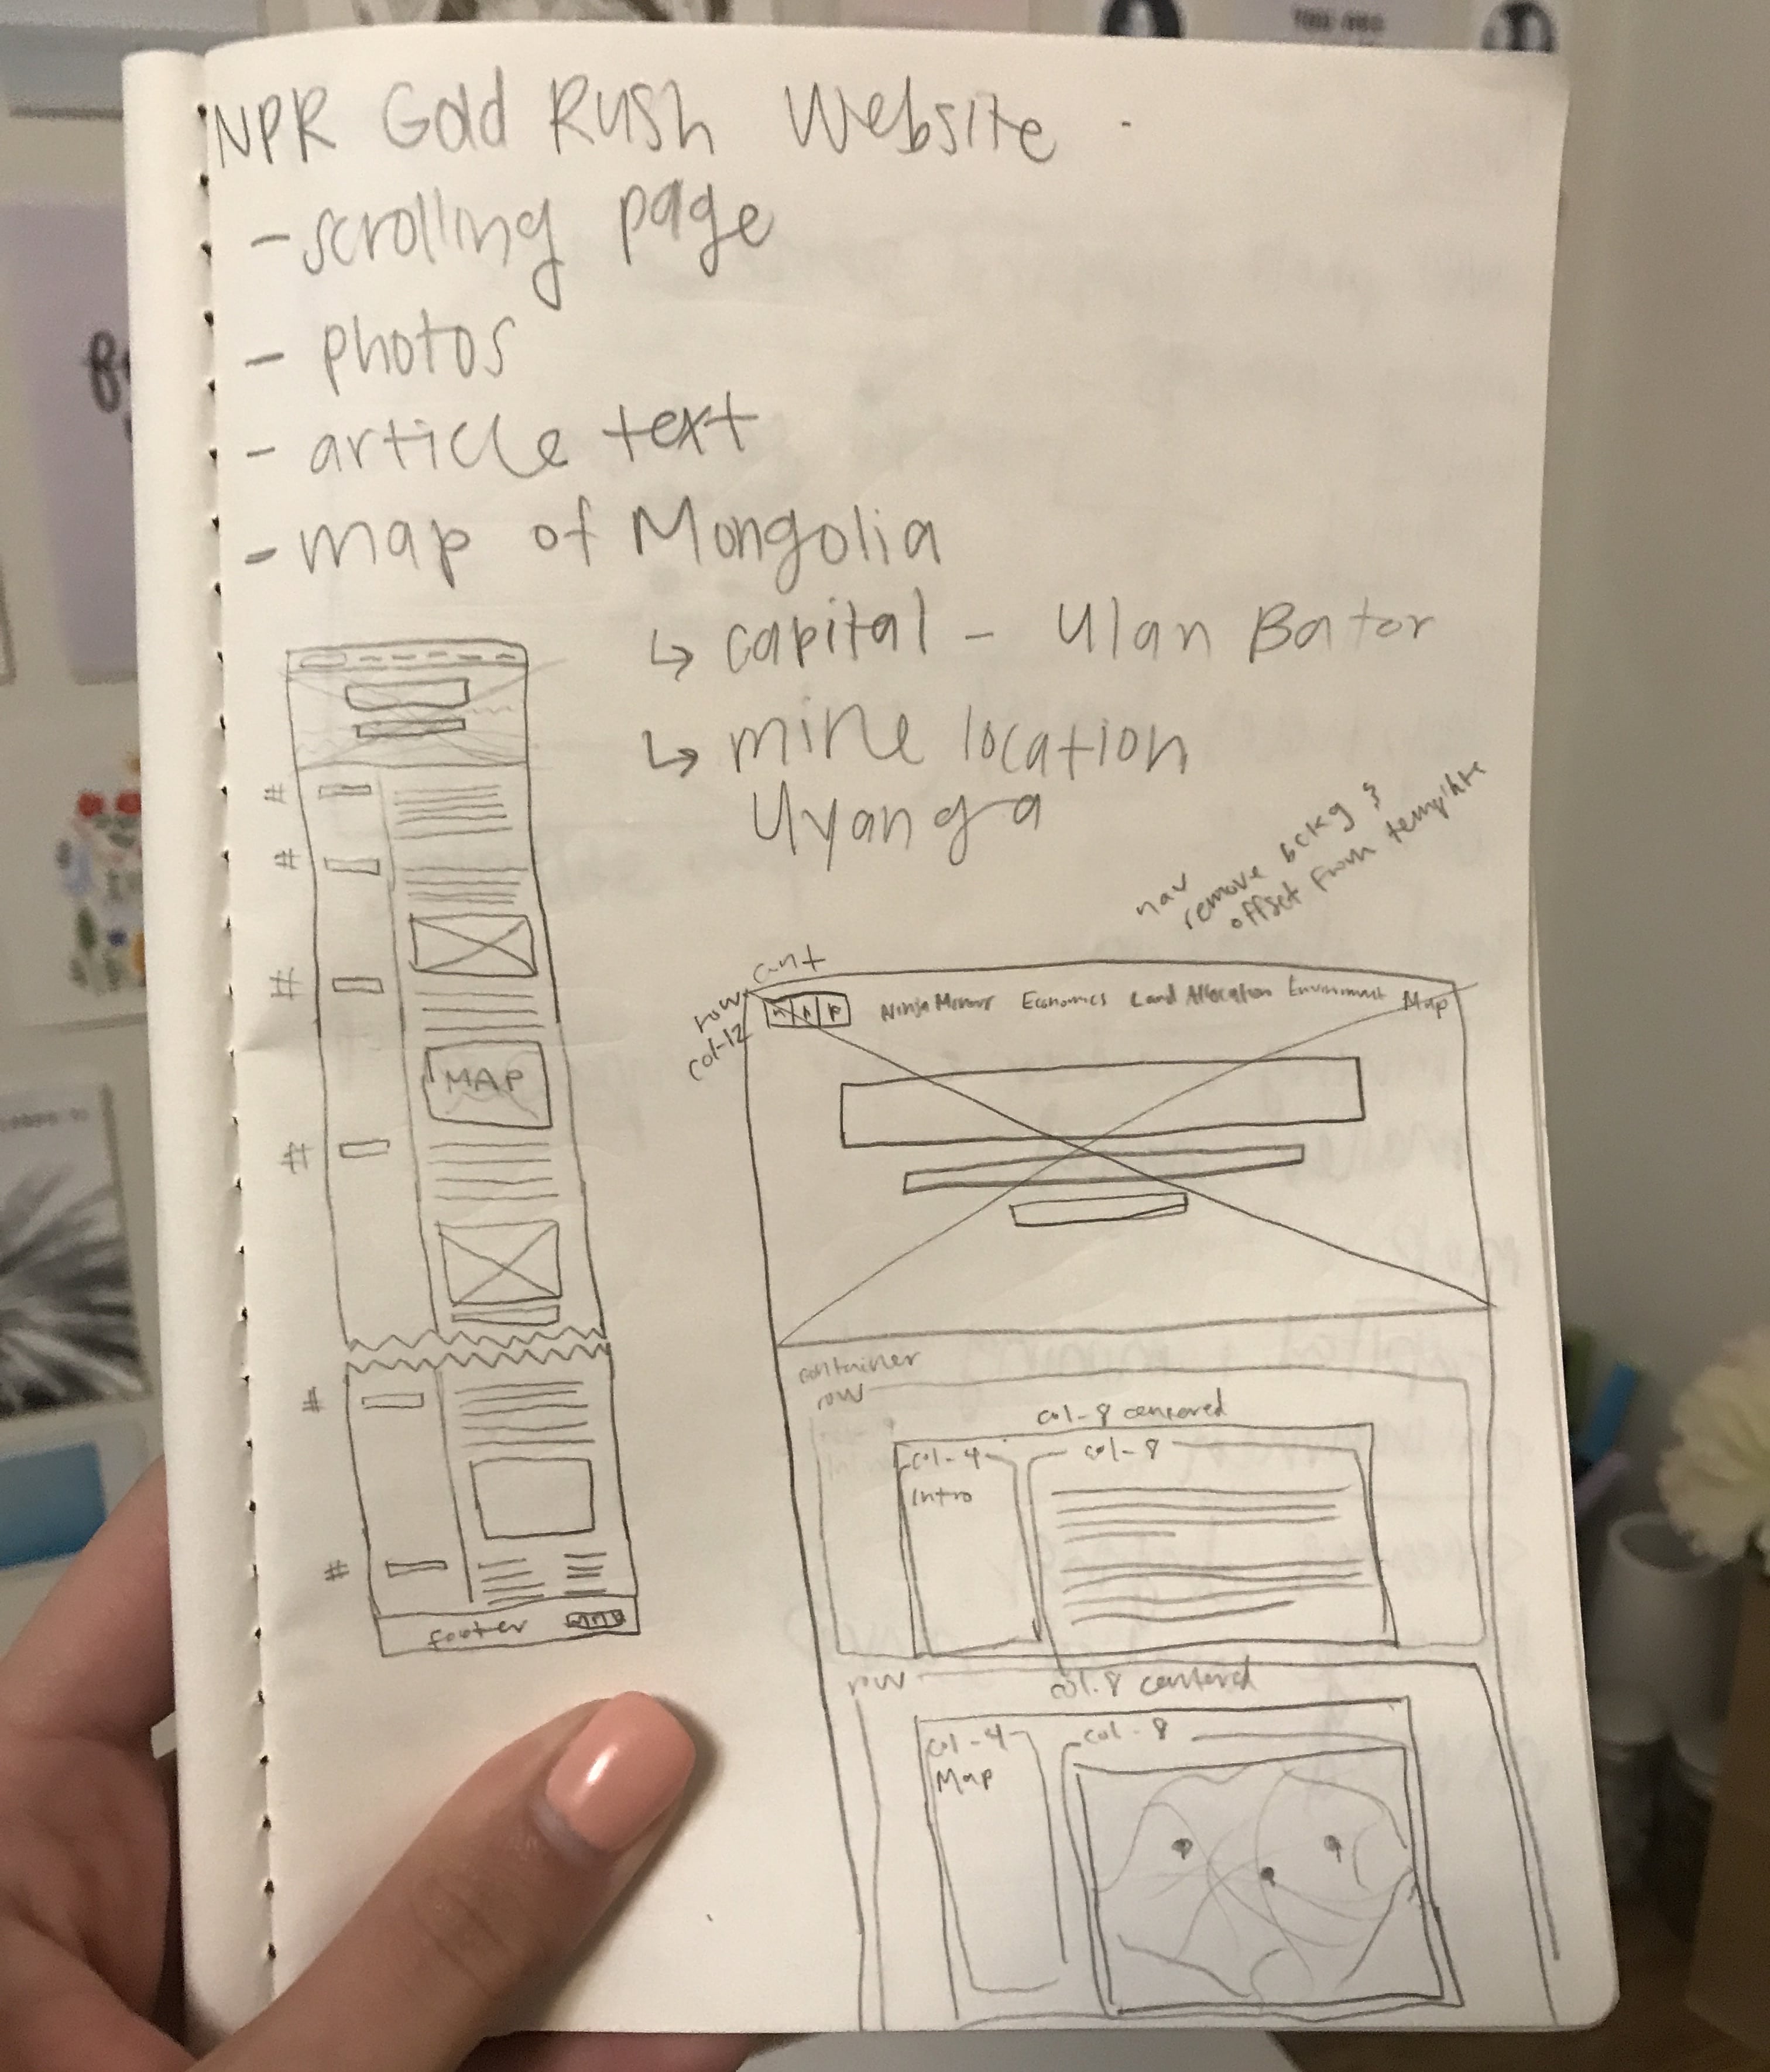 NPR Gold Rush Website
- scrolling page
- photos
- article text
- map of Mongolia
↳ capital - Ulan Bator
↳ mine location
Uyanga
nav
remove bckg &
offset from template
#
#
#
MAP
#
#
#
footer
npr
row
col-12
n p r Ninja Economics Land Allocation Environment Map
container
row
col-8 centered
col-4
Intro
col-8
row
col-8 centered
col-4
Map
col-8